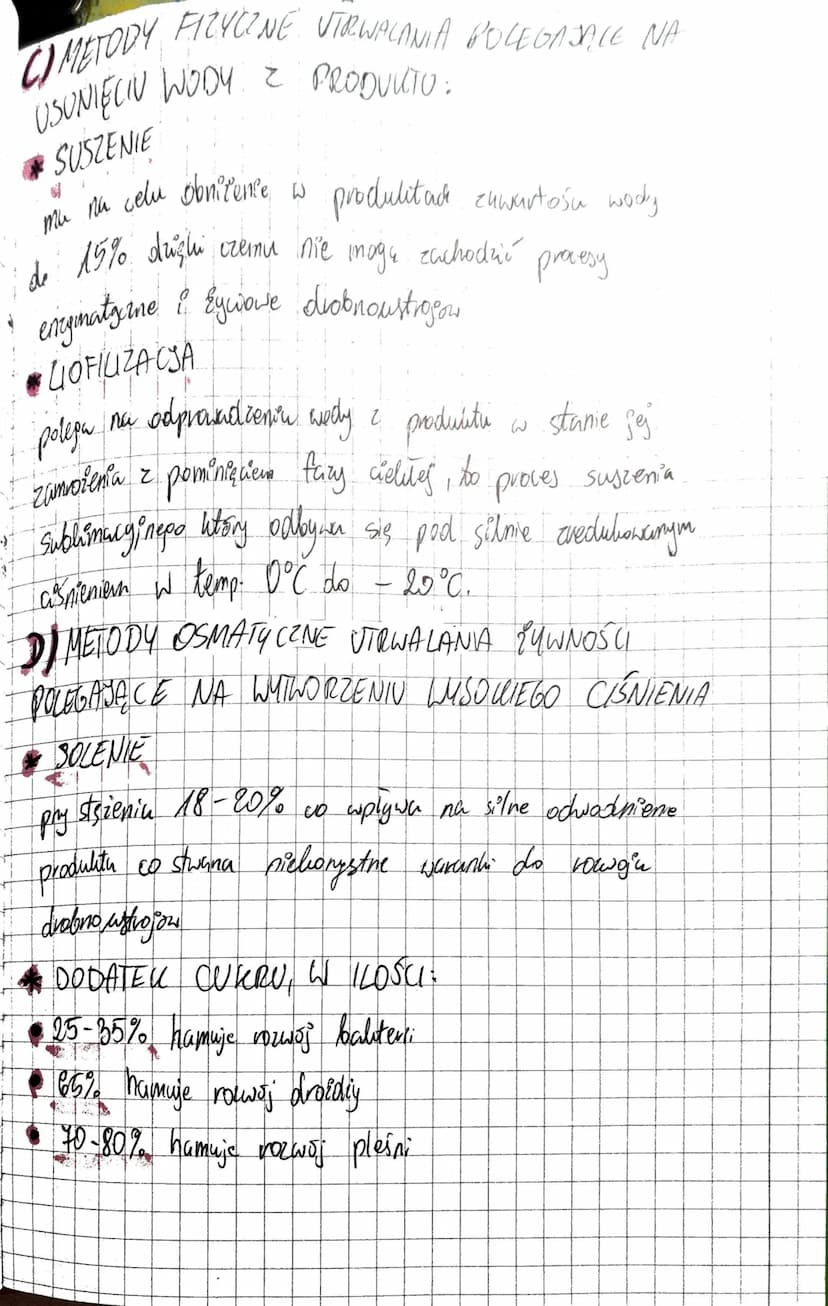 C) METODY FIZYCZNE UTRWALANIA POLEGAJĄCE NA
USUNIĘCIU WODY Z PRODUKTU:
* SUSZENIE
ma na celu obniżenie w produktach zawartości wody
do 15% dzięki czemu nie mogą zachodzić procesy
enzymatyczne i życiowe drobnoustrojów
* LIOFILIZACJA
polega na odprowadzeniu wody z produktu w stanie jej
zamrożenia z pominięciem fazy ciekłej, to proces suszenia
sublimacyjnego który odbywa się pod silnie zredukowanym
ciśnieniem w temp. 0°C do - 20°C.
D) METODY OSMATYCZNE UTRWALANIA ŻYWNOŚCI
POLEGAJĄCE NA WYTWORZENIU WYSOKIEGO CIŚNIENIA
* SOLENIE
przy stężeniu 18-20% co wpływa na silne odwodnienie
produktu co stwarza niekorzystne warunki do rozwoju
drobnoustrojów
* DODATEK CUKRU, W ILOŚCI:
• 25-35% hamuje rozwój bakterii
• 65% hamuje rozwój drożdży
• 70-80% hamuje rozwój pleśni